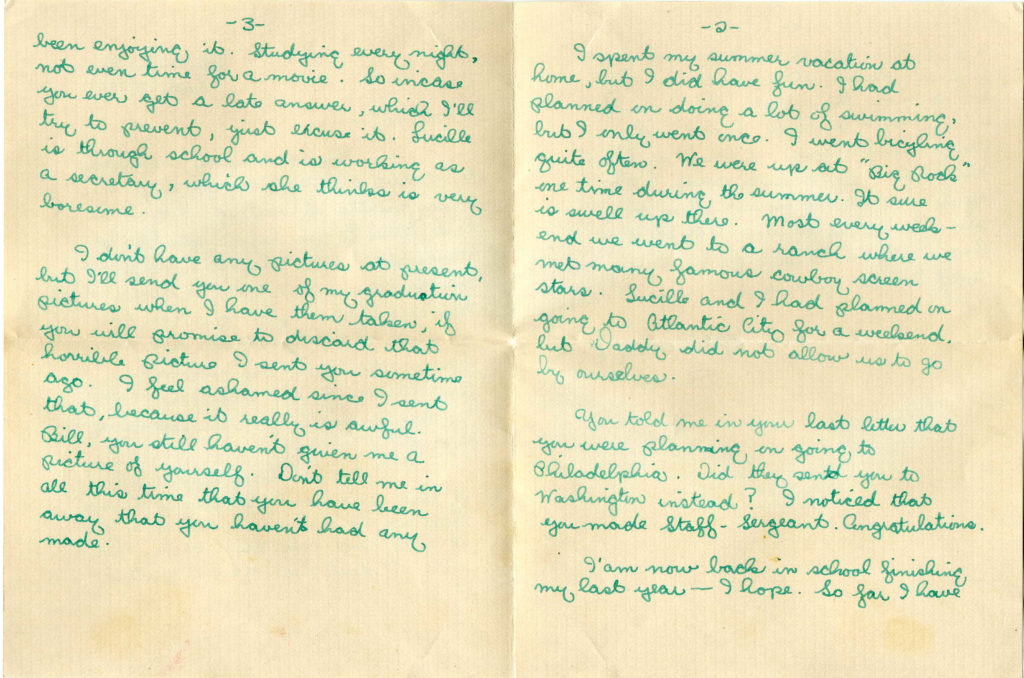 -2-
I spent my summer vacation at
home, but I did have fun. I had
planned on doing a lot of swimming,
but I only went once. I went bicyling
quite often. We were up at "Big Rock"
one time during the summer. It sure
is swell up there. Most every week-
end we went to a ranch where we
met many famous cowboy screen
stars. Lucille and I had planned on
going to Atlantic City for a weekend,
but Daddy did not allow us to go
by ourselves.
You told me in your last letter that
you were planning on going to
Philadelphia. Did they send you to
Washington instead? I noticed that
you made Staff-Sergeant. Congratulations.
I'am now back in school finishing
my last year — I hope. So far I have
-3-
been enjoying it. Studying every night,
not even time for a movie. So incase
you ever get a late answer, which I'll
try to prevent, just excuse it. Lucille
is through school and is working as
a secretary, which she thinks is very
boresome.
I don't have any pictures at present,
but I'll send you one of my graduation
pictures when I have them taken, if
you will promise to discard that
horrible picture I sent you sometime
ago. I feel ashamed since I sent
that, because it really is awful.
Bill, you still haven't given me a
picture of yourself. Don't tell me in
all this time that you have been
away that you haven't had any
made.